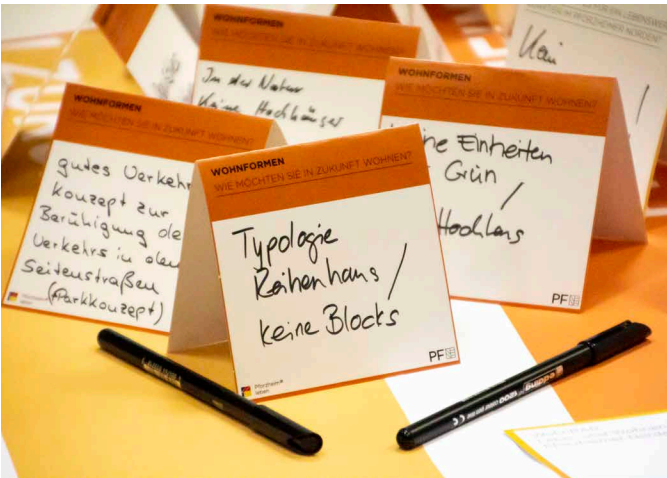 WOHNFORMEN
WIE MÖCHTEN SIE IN ZUKUNFT WOHNEN?
In der Natur
Keine Hochhäuser
WOHNFORMEN
WIE MÖCHTEN SIE IN ZUKUNFT WOHNEN?
gutes Verkehr
Konzept zur
Beruhigung de
Verkehrs in den
Seitenstraßen
(Parkkonzept)
WOHNFORMEN
WIE MÖCHTEN SIE IN ZUKUNFT WOHNEN?
Typologie
Reihenhaus /
keine Blocks
Pforzheim
leben
PF
WOHNFORMEN
WIE MÖCHTEN SIE IN ZUKUNFT WOHNEN?
ne Einheiten
Grün /
Hochhaus
PF
PFORZHEIMER NORDEN?
edding